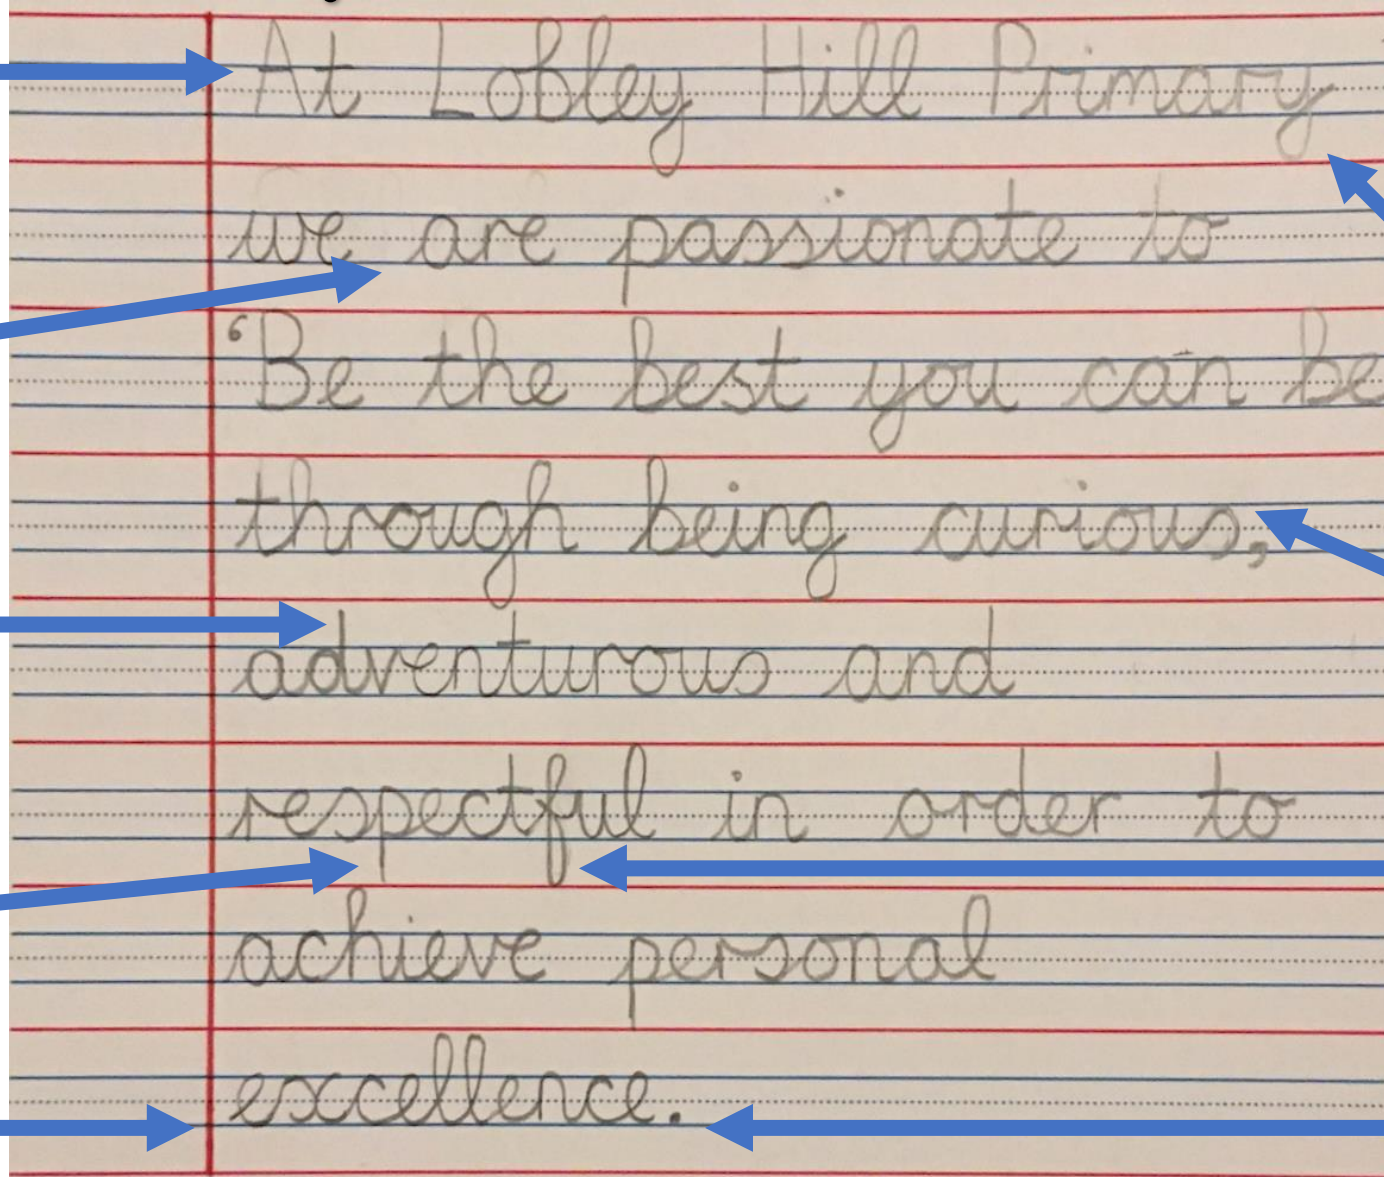 At Lobley Hill Primary
we are passionate to
‘Be the best you can be
through being curious,
adventurous and
respectful in order to
achieve personal
excellence.